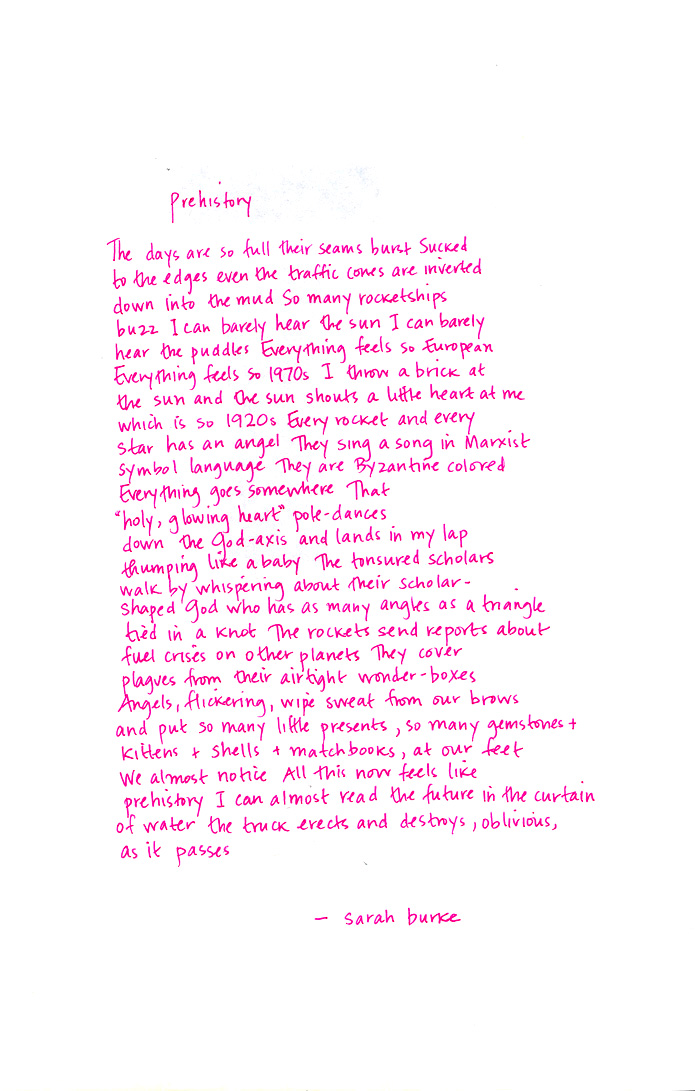 Prehistory
The days are so full their seams burst Sucked
to the edges even the traffic cones are inverted
down into the mud So many rocketships
buzz I can barely hear the sun I can barely
hear the puddles Everything feels so European
Everything feels so 1970s I throw a brick at
the sun and the sun shouts a little heart at me
which is so 1920s Every rocket and every
star has an angel They sing a song in Marxist
symbol language They are Byzantine colored
Everything goes somewhere That
"holy, glowing heart" pole-dances
down the god-axis and lands in my lap
thumping like a baby The tonsured scholars
walk by whispering about their scholar-
shaped god who has as many angles as a triangle
tied in a knot The rockets send reports about
fuel crises on other planets They cover
plagues from their airtight wonder-boxes
Angels, flickering, wipe sweat from our brows
and put so many little presents, so many gemstones +
kittens + shells + matchbooks, at our feet
We almost notice All this now feels like
prehistory I can almost read the future in the curtain
of water the truck erects and destroys, oblivious,
as it passes
— sarah burke